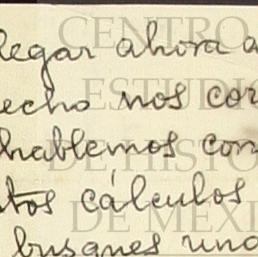 legar ahora a
echo nos cor
hablemos con
tos cálculos
busques una
CENTRO
ESTUDIO
DE HISTO
DE MÉXI